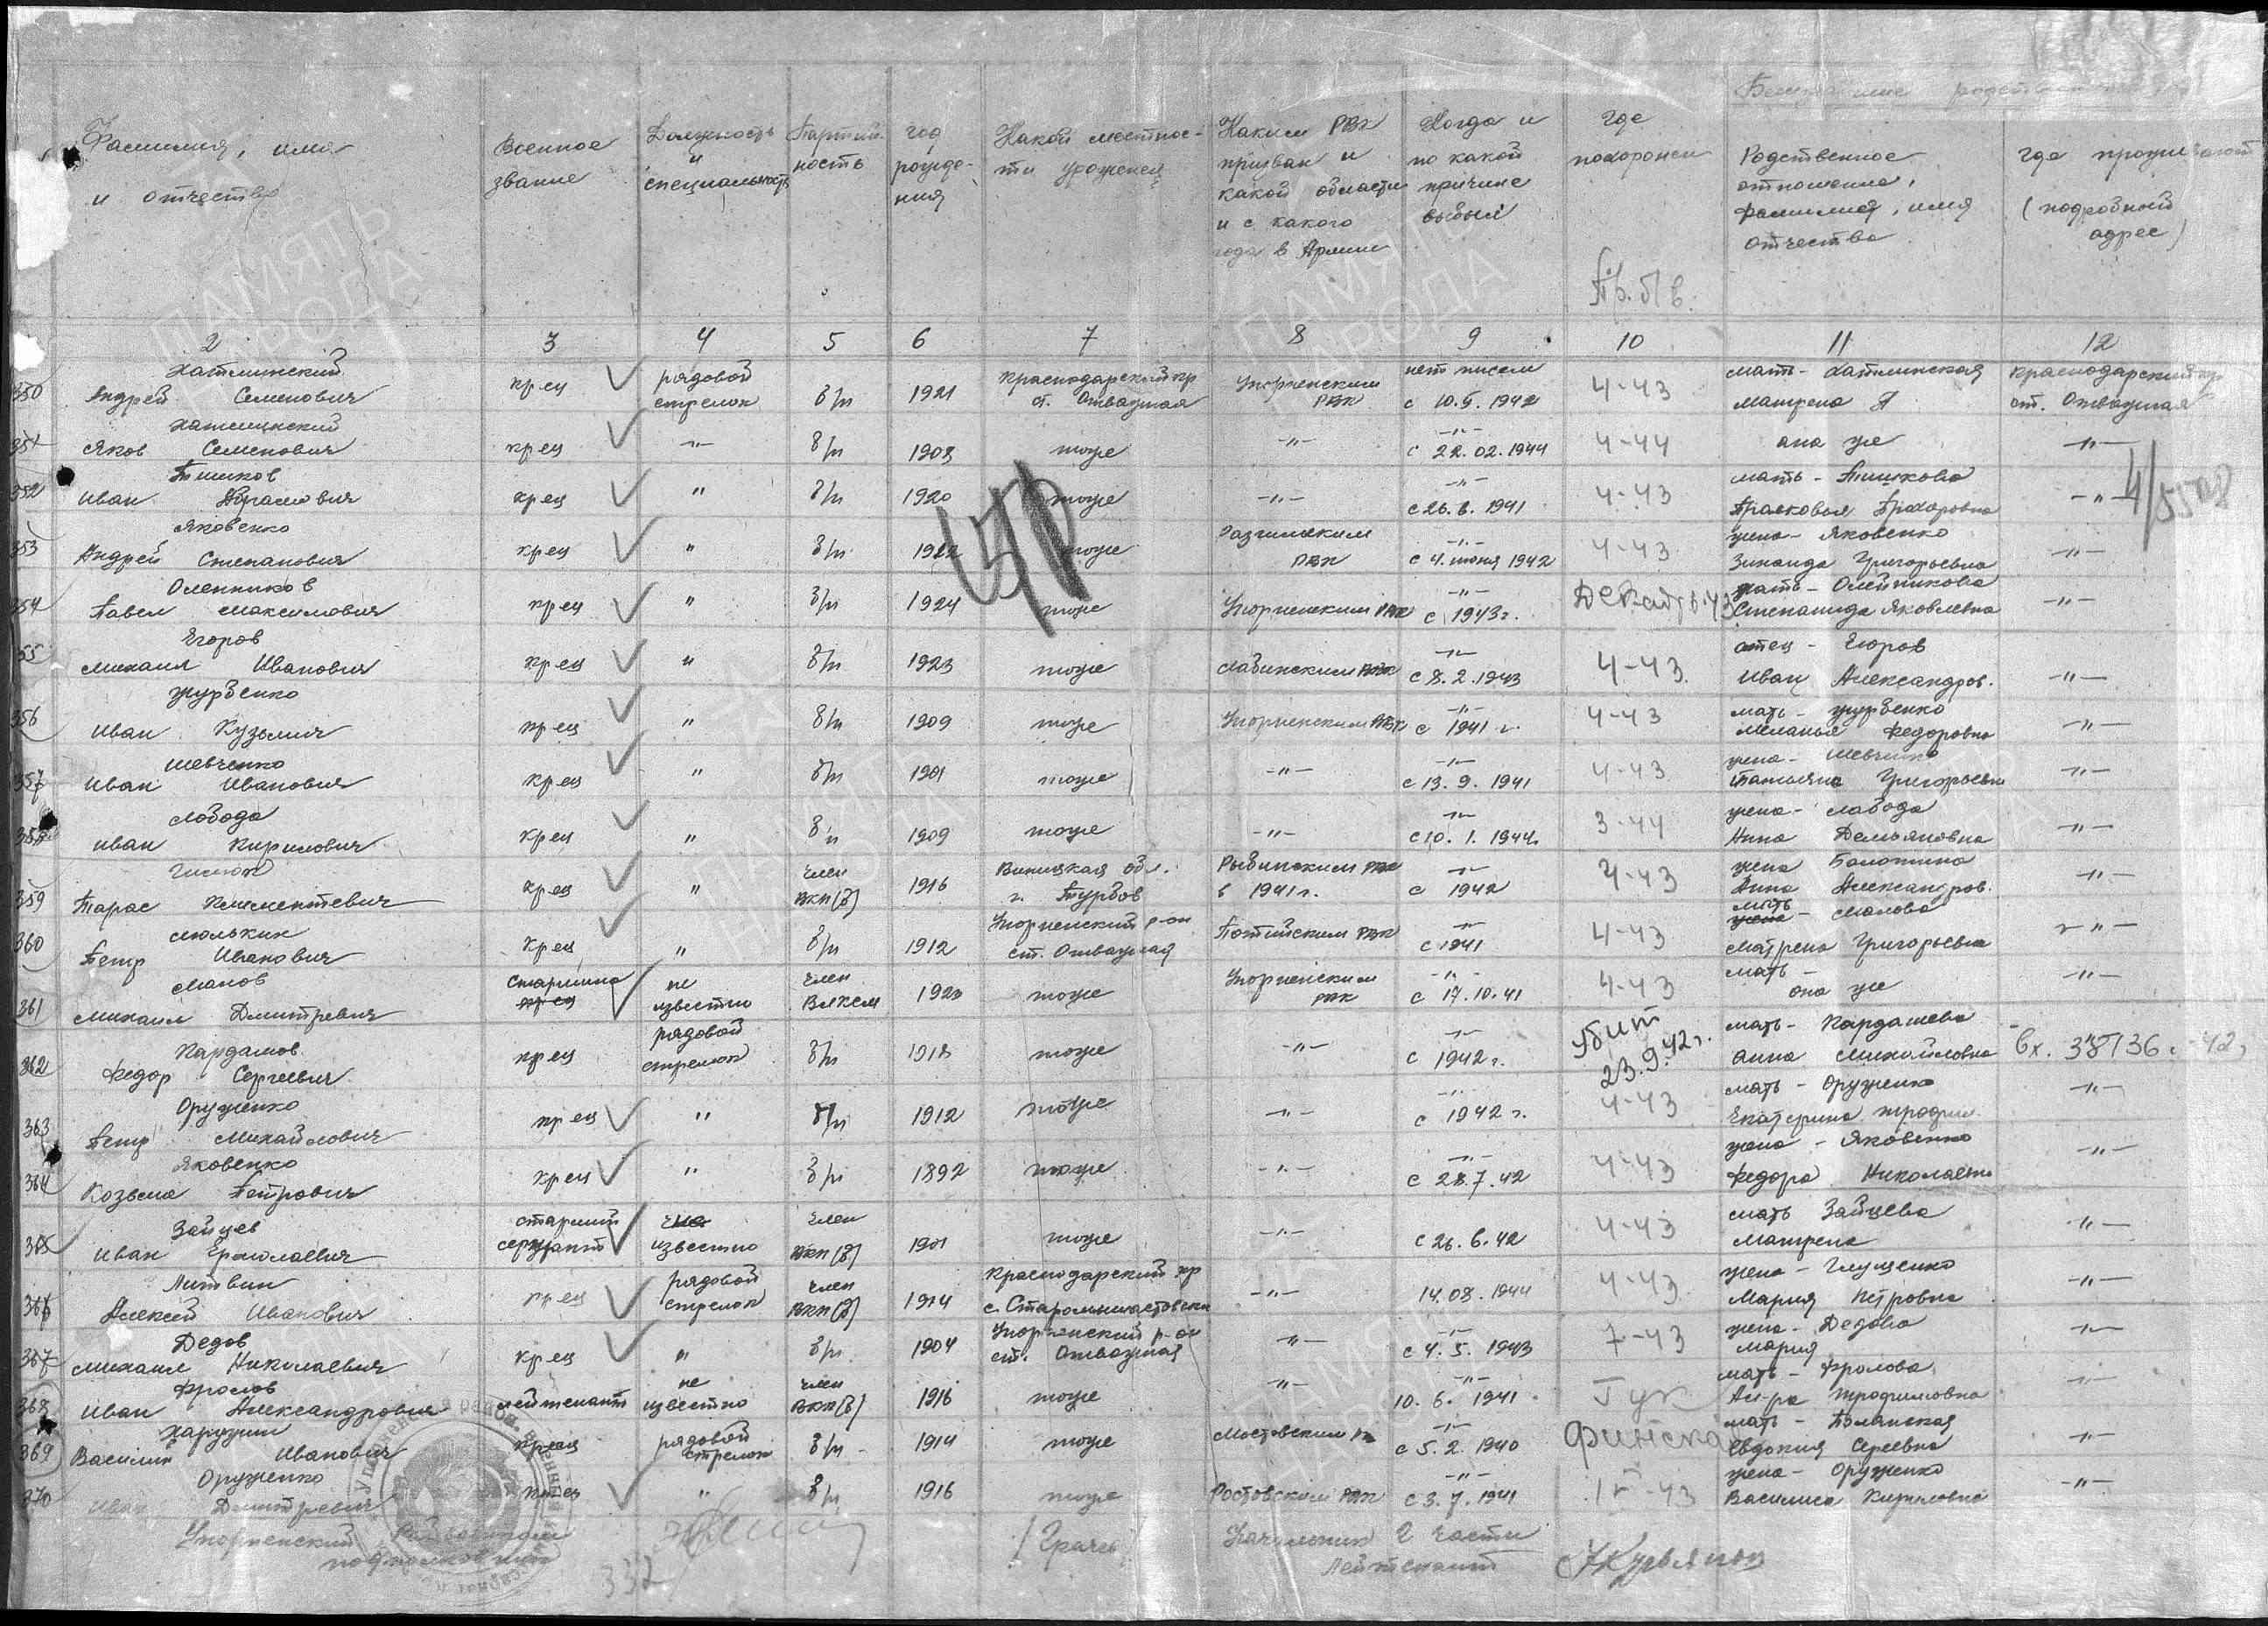 Фамилия, имя и отчество
Военное звание
Должность и специальность
Партийность
год рождения
Какой местности уроженец
Каким РВК призван и какой области и с какого года в Армии
Когда и по какой причине выбыл
Где похоронен
Пр. б/в.
Родственное отношение, фамилия, имя отчество
где проживают (подробный адрес)
2 3 4 5 6 7 8 9 10 11 12
350 Хатлинский Андрей Семенович крец рядовой стрелок б/п 1921 Краснодарский кр ст. Отважная Упорненским РВК нет писем с 10.5.1942 4-43 мать - Хатлинская Матрена П Краснодарский кр ст. Отважная
351 Яков Семенович крец -"- б/п 1908 тоже -"- -"- с 22.02.1944 4-44 она же -"-
352 Тишков Иван Абрамович крец " б/п 1920 тоже -"- -"- с 26.6.1941 4-43 мать - Тишкова Прасковья Прохоровна -"-
4/5508
353 Яковенко Андрей Степанович крец " б/п 1922 тоже РВК -"- с 4. июня 1942 4-43 жена - Яковенко Зинаида Григорьевна -"-
354 Оленников Павел Максимович крец " б/п 1924 тоже Упорненским РВК -"- с 1943г. Декабрь 43 мать - Олейникова Степанида Яковлевна -"-
355 Егоров Михаил Иванович крец " б/п 1923 тоже Лабинским РВК -"- с 8.2.1943 4-43 отец - Егоров Иван Александров. -"-
356 Журбенко Иван Кузьмич крец " б/п 1909 тоже Упорненским РВК -"- с 1941 г. 4-43 мать - Журбенко Меланья Федоровна -"-
357 Шевченко Иван Иванович крец " б/п 1901 тоже -"- -"- с 13.9.1941 4-43 жена - Шевченко Татьяна Григорьевн -"-
358 Лобода Иван Кирилович крец " б/п 1909 тоже -"- -"- с 10.1.1944. 3-44 жена - Лабода Анна Демьяновна -"-
359 Тарас Климентевич крец " член ВКП(б) 1916 Виницкая обл. г. Турбов Рыбинским РВК в 1941г. -"- с 1942 4-43 жена Болотина Анна Александров. -"-
360 Петр Иванович крец " б/п 1912 Упорненский р-он ст. Отважная Потийским РВК -"- с 1941 4-43 мать Матрена Григорьевна -"-
361 Михаил Дмитревич старшина не известно член Влксм 1920 тоже Упорненским РВК -"- с 17.10.41 4-43 мать - она же -"-
362 Кардашов Федор Сергеевич крец рядовой стрелок б/п 1918 тоже -"- -"- с 1942 г. Убит 23.9.42г. мать - Кардашева Анна Михайловна вх. 38136 с-42г
363 Оруженко Петр Михайлович крец " б/п 1912 тоже -"- -"- с 1942 г. 4-43 мать - Оруженко Екатерина Трофим. -"-
364 Яковенко Козьма Петрович крец " б/п 1892 тоже -"- -"- с 28.7.42 4-43 жена - Яковенко Федора Николаевн -"-
365 Зайцев Иван Ермолаевич старший сержант известно член ВКП(б) 1901 тоже -"- с 26.6.42 4-43 мать Зайцева Матрена -"-
366 Литвин Алексей Иванович крец рядовой стрелок член ВКП(б) 1914 Краснодарский кр -"- 14.08.1944 4-43 жена - Глущенко Мария Петровна -"-
367 Дедов Михаил Николаевич крец " б/п 1904 Упорненский р-он ст. Отважная -"- -"- с 4.5.1943 7-43 жена - Дедова Мария -"-
368 Фролов Иван Александрович лейтенант не известно член ВКП(б) 1916 тоже -"- -"- 10.6.1941. Гук мать - Фролова Трофимовна -"-
369 Василий Иванович крец рядовой стрелок б/п - 1914 тоже Мостовским -"- с 5.2.1940 Финская мать - Евдокия Сергеевна -"-
370 Оруженко Иван Дмитревич крец " б/п 1916 тоже Ростовским РВК -"- с 3.7.1941 43 жена - Оруженко Василиса Кириловна -"-
Упорненский Райвоенком
подполковник
/Грачев/
332
Начальник 2 части
лейтенант
ПАМЯТЬ НАРОДА